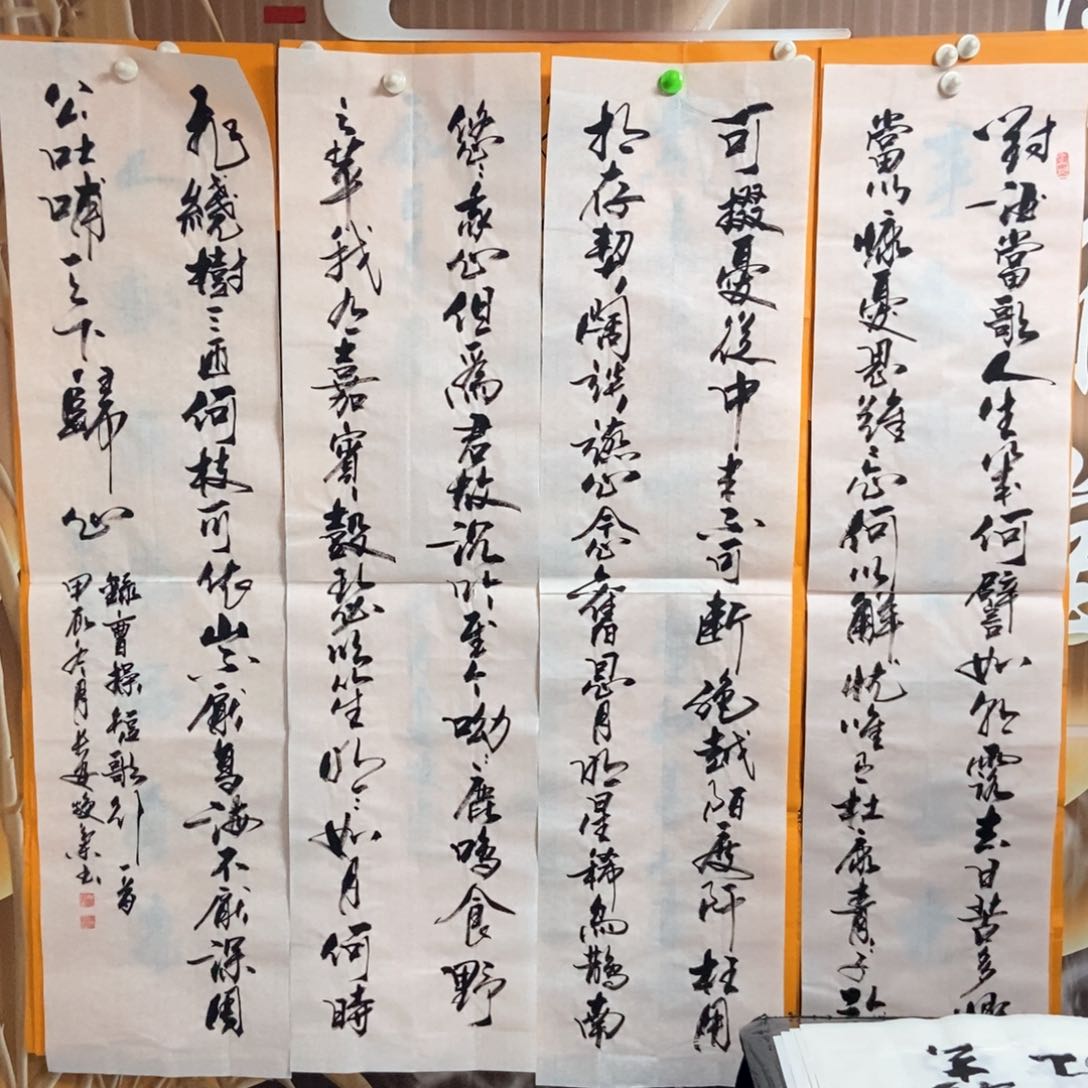 對酒當歌人生幾何譬如朝露去日苦多慨
當以慷憂思難忘何以解忧唯有杜康青々子衿
可掇憂從中來不可斷絶越陌度阡枉用
相存契闊談讌心念舊恩月明星稀烏鵲南
悠々我心但爲君故沉吟至今呦々鹿鳴食野
之苹我有嘉賓鼓瑟吹笙明々如月何時
飛繞樹三匝何枝可依山不厭高海不厭深周
公吐哺天下歸心
錄曹操短歌行一首
甲辰冬月長安書